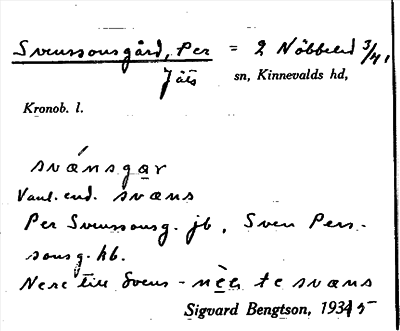 Svenssonsgård, Per = 2 Nöbbeled 3/41
Jäts sn, Kinnevalds hd,
Kronob. l.
svánsgar
Vanl. end. svæns
Per Svenssonsg. jb, Sven Pers-
sonsg. hb.
Nere till Svens - nèe te svæns
Sigvard Bengtson, 1935